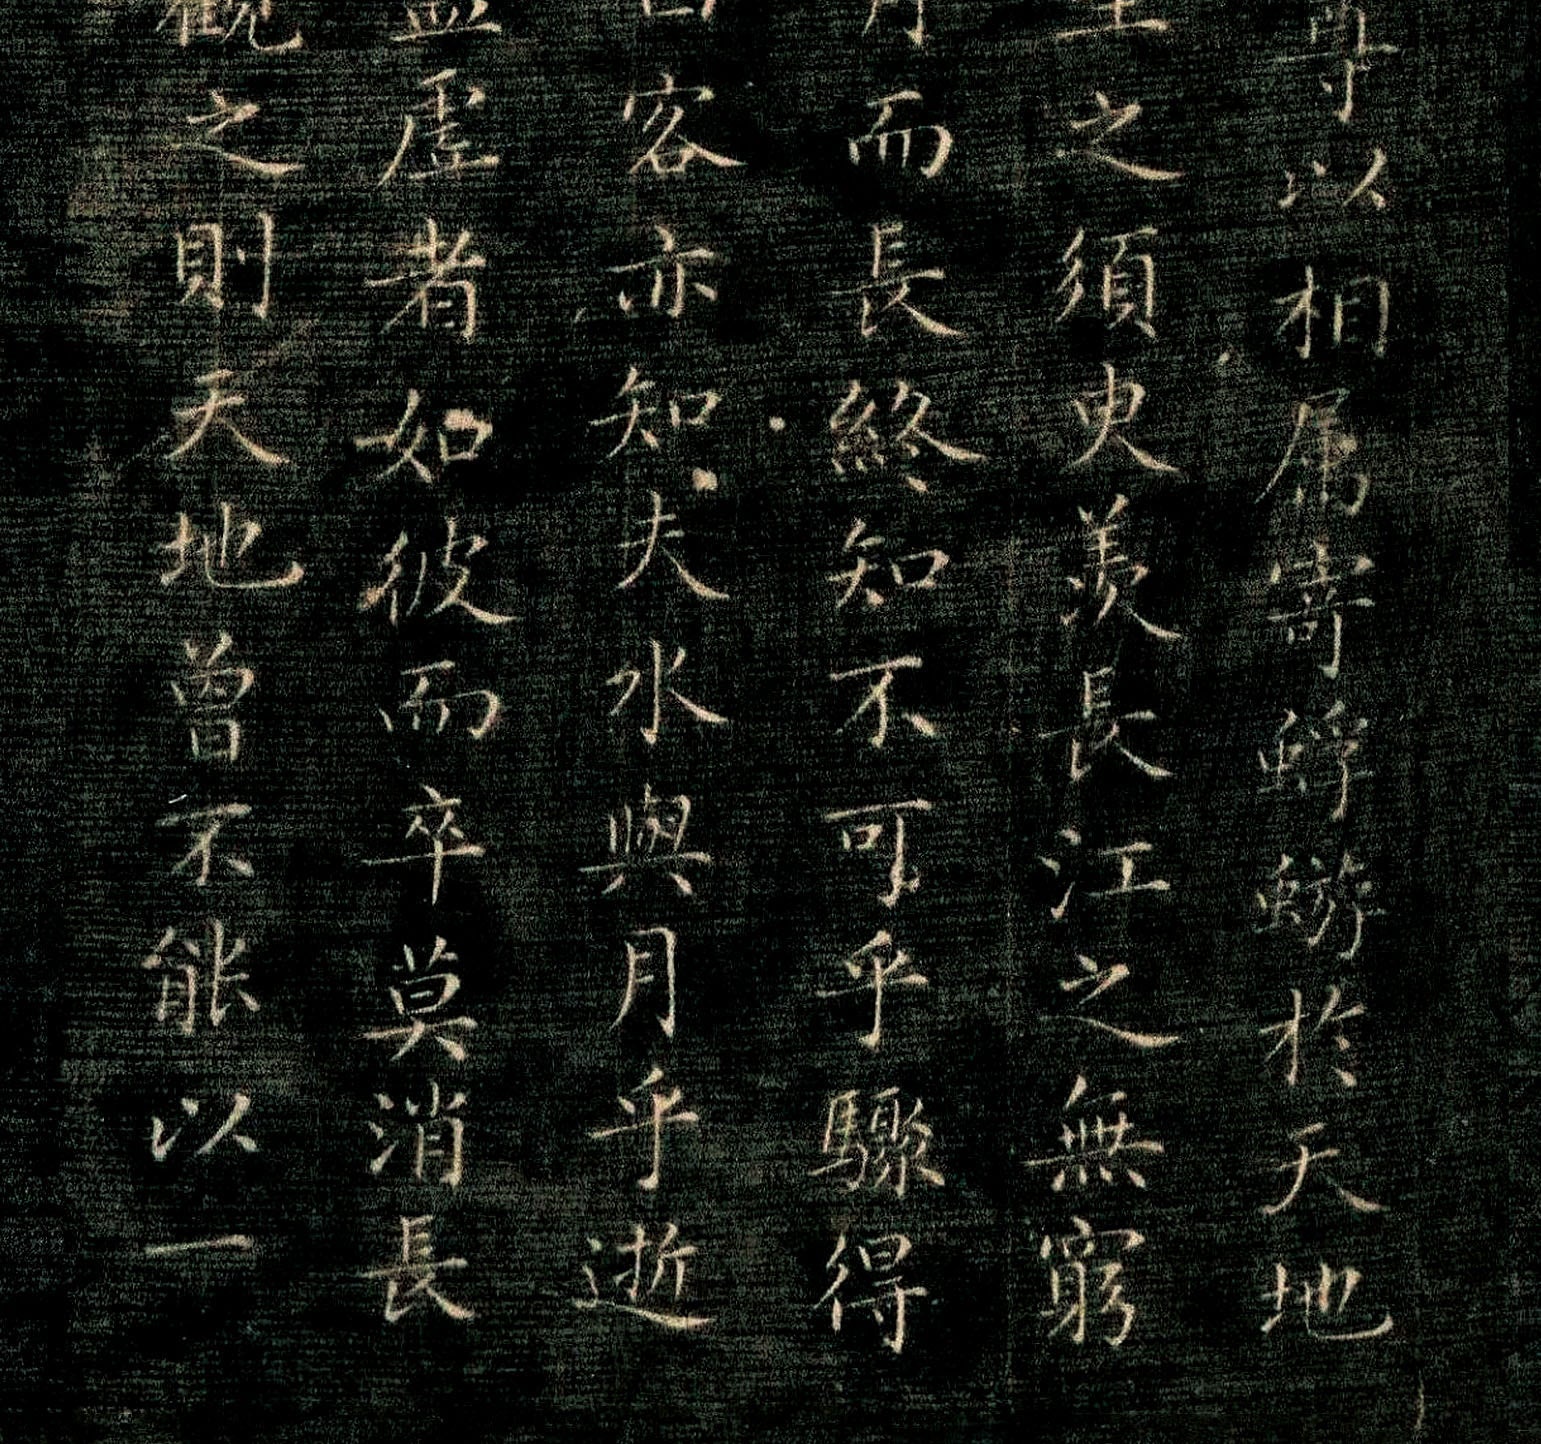 尊以相属寄蜉蝣於天地
生之須臾羨長江之無窮
月而長終知不可乎驟得
曰客亦知夫水與月乎逝
盈虛者如彼而卒莫消長
觀之則天地曾不能以一